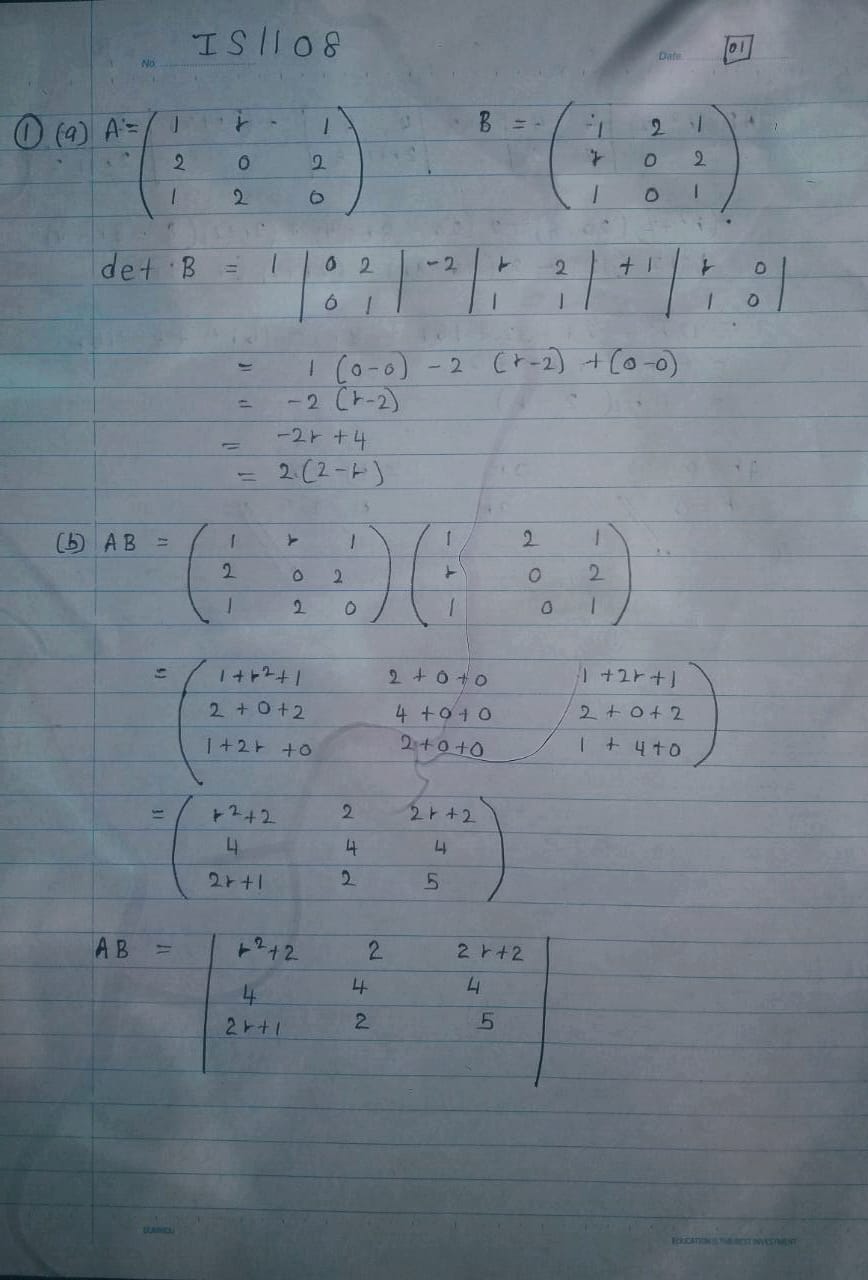 IS1108
No
Date
01
① (a) A = ( 1 r 1 B = ( 1 2 1
2 0 2 r 0 2
1 2 0 ) 1 0 1 )
det B = 1 | 0 2 | -2 | r 2 | +1 | r 0 |
0 1 1 1 1 0
= 1 (0-0) - 2 (r-2) + (0-0)
= -2 (r-2)
= -2r + 4
= 2(2-r)
(b) AB = ( 1 r 1 ) ( 1 2 1 )
2 0 2 r 0 2
1 2 0 1 0 1
= ( 1+r²+1 2+0+0 1+2r+1 )
2+0+2 4+0+0 2+0+2
1+2r+0 2+0+0 1+4+0
= ( r²+2 2 2r+2 )
4 4 4
2r+1 2 5
AB = | r²+2 2 2r+2 |
4 4 4
2r+1 2 5
EDUCATION IS THE BEST INVESTMENT